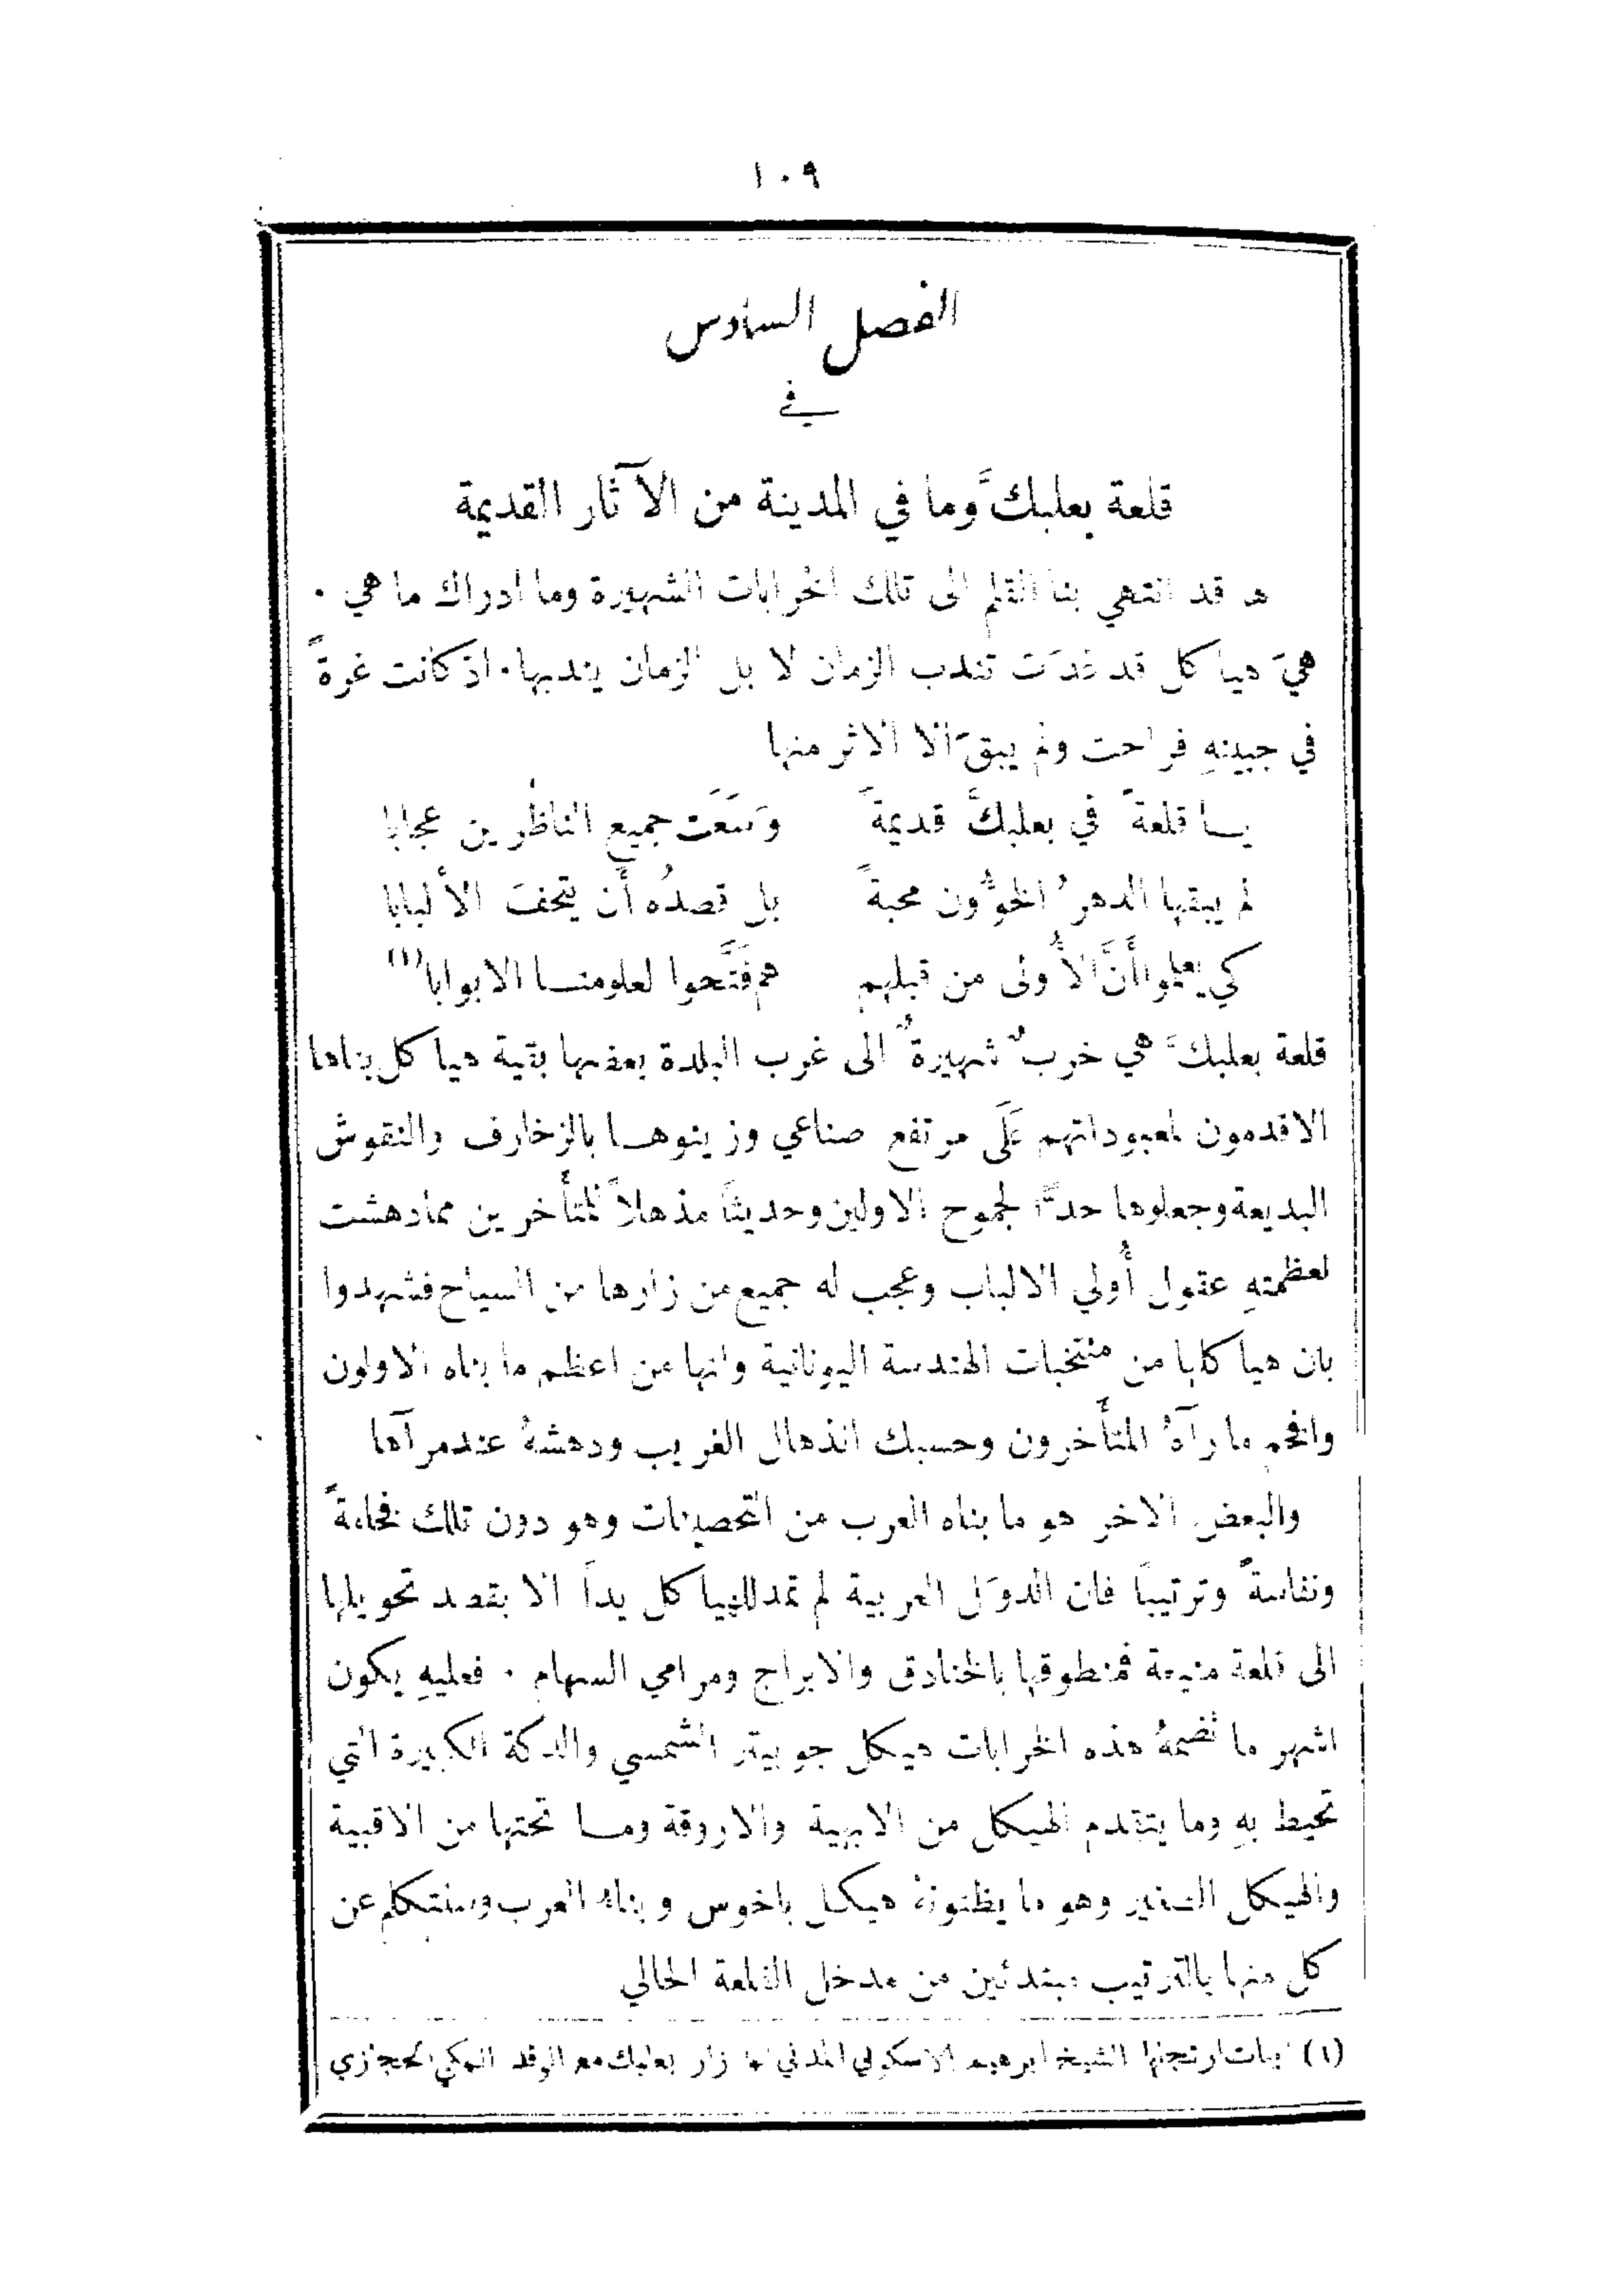 ١٠٩
الفصل السادس
في
قلعة بعلبكَّ وما في المدينة من الآثار القديمة
ها قد انتهى بنا القلم الى تلك الخرابات الشهيرة وما ادراك ما هي .
هيَ هياكل قد غدَت تندب الزمان لا بل الزمان يندبها. اذ كانت غرةً
في جبينهِ فراحت ولم يبقَ الا الاثر منها
يا قلعةً في بعلبكَّ قديمةً وَسَعَت جميع الناظرين عجابا
لم يبقها الدهرُ الخؤُون محبةً بل قصدُه أَن يتحفَ الأَلبابا
كي يعلموا أَنَّ الأُولى من قبلهم هم فَتَّحوا لعلومنا الابوابا(١)
قلعة بعلبكَّ هي خربٌ شهيرةٌ الى غرب البلدة بعضها بقية هياكل بناها
الاقدمون لمعبوداتهم عَلَى مرتفع صناعي وزينوها بالزخارف والنقوش
البديعة وجعلوها حدًّا لجموح الاولين وحديثاً مذهلاً للمتأَخرين مما دهشت
لعظمتهِ عقول أُولي الالباب وعجب له جميع من زارها من السياح فشهدوا
بان هياكلها من منتخبات الهندسة اليونانية وانها من اعظم ما بناه الاولون
وافخم ما رآهُ المتأَخرون وحسبك انذهال الغريب ودهشهُ عند مرآها
والبعض الاخر هو ما بناه العرب من التحصينات وهو دون تلك فخامةً
ونفاسةً وترتيباً فان الدوَل العربية لم تمد للهياكل يداً الا بقصد تحويلها
الى قلعة منيعة فمنطوقها بالخنادق والابراج ومرامي السهام . فعليهِ يكون
اشهر ما تضمهُ هذه الخرابات هيكل جوبيتر الشمسي والدكة الكبيرة التي
تحيط بهِ وما يتقدم الهيكل من الابهية والاروقة وما تحتها من الاقبية
والهيكل الصغير وهو ما يظنونهُ هيكل باخوس وبناء العرب وسنتكلم عن
كل منها بالترتيب مبتدئين من مدخل القلعة الحالي
(١) ابيات ارتجلها الشيخ ابرهيم الاسكوبي المدني لما زار بعلبك مع الوفد المكي الحجازي